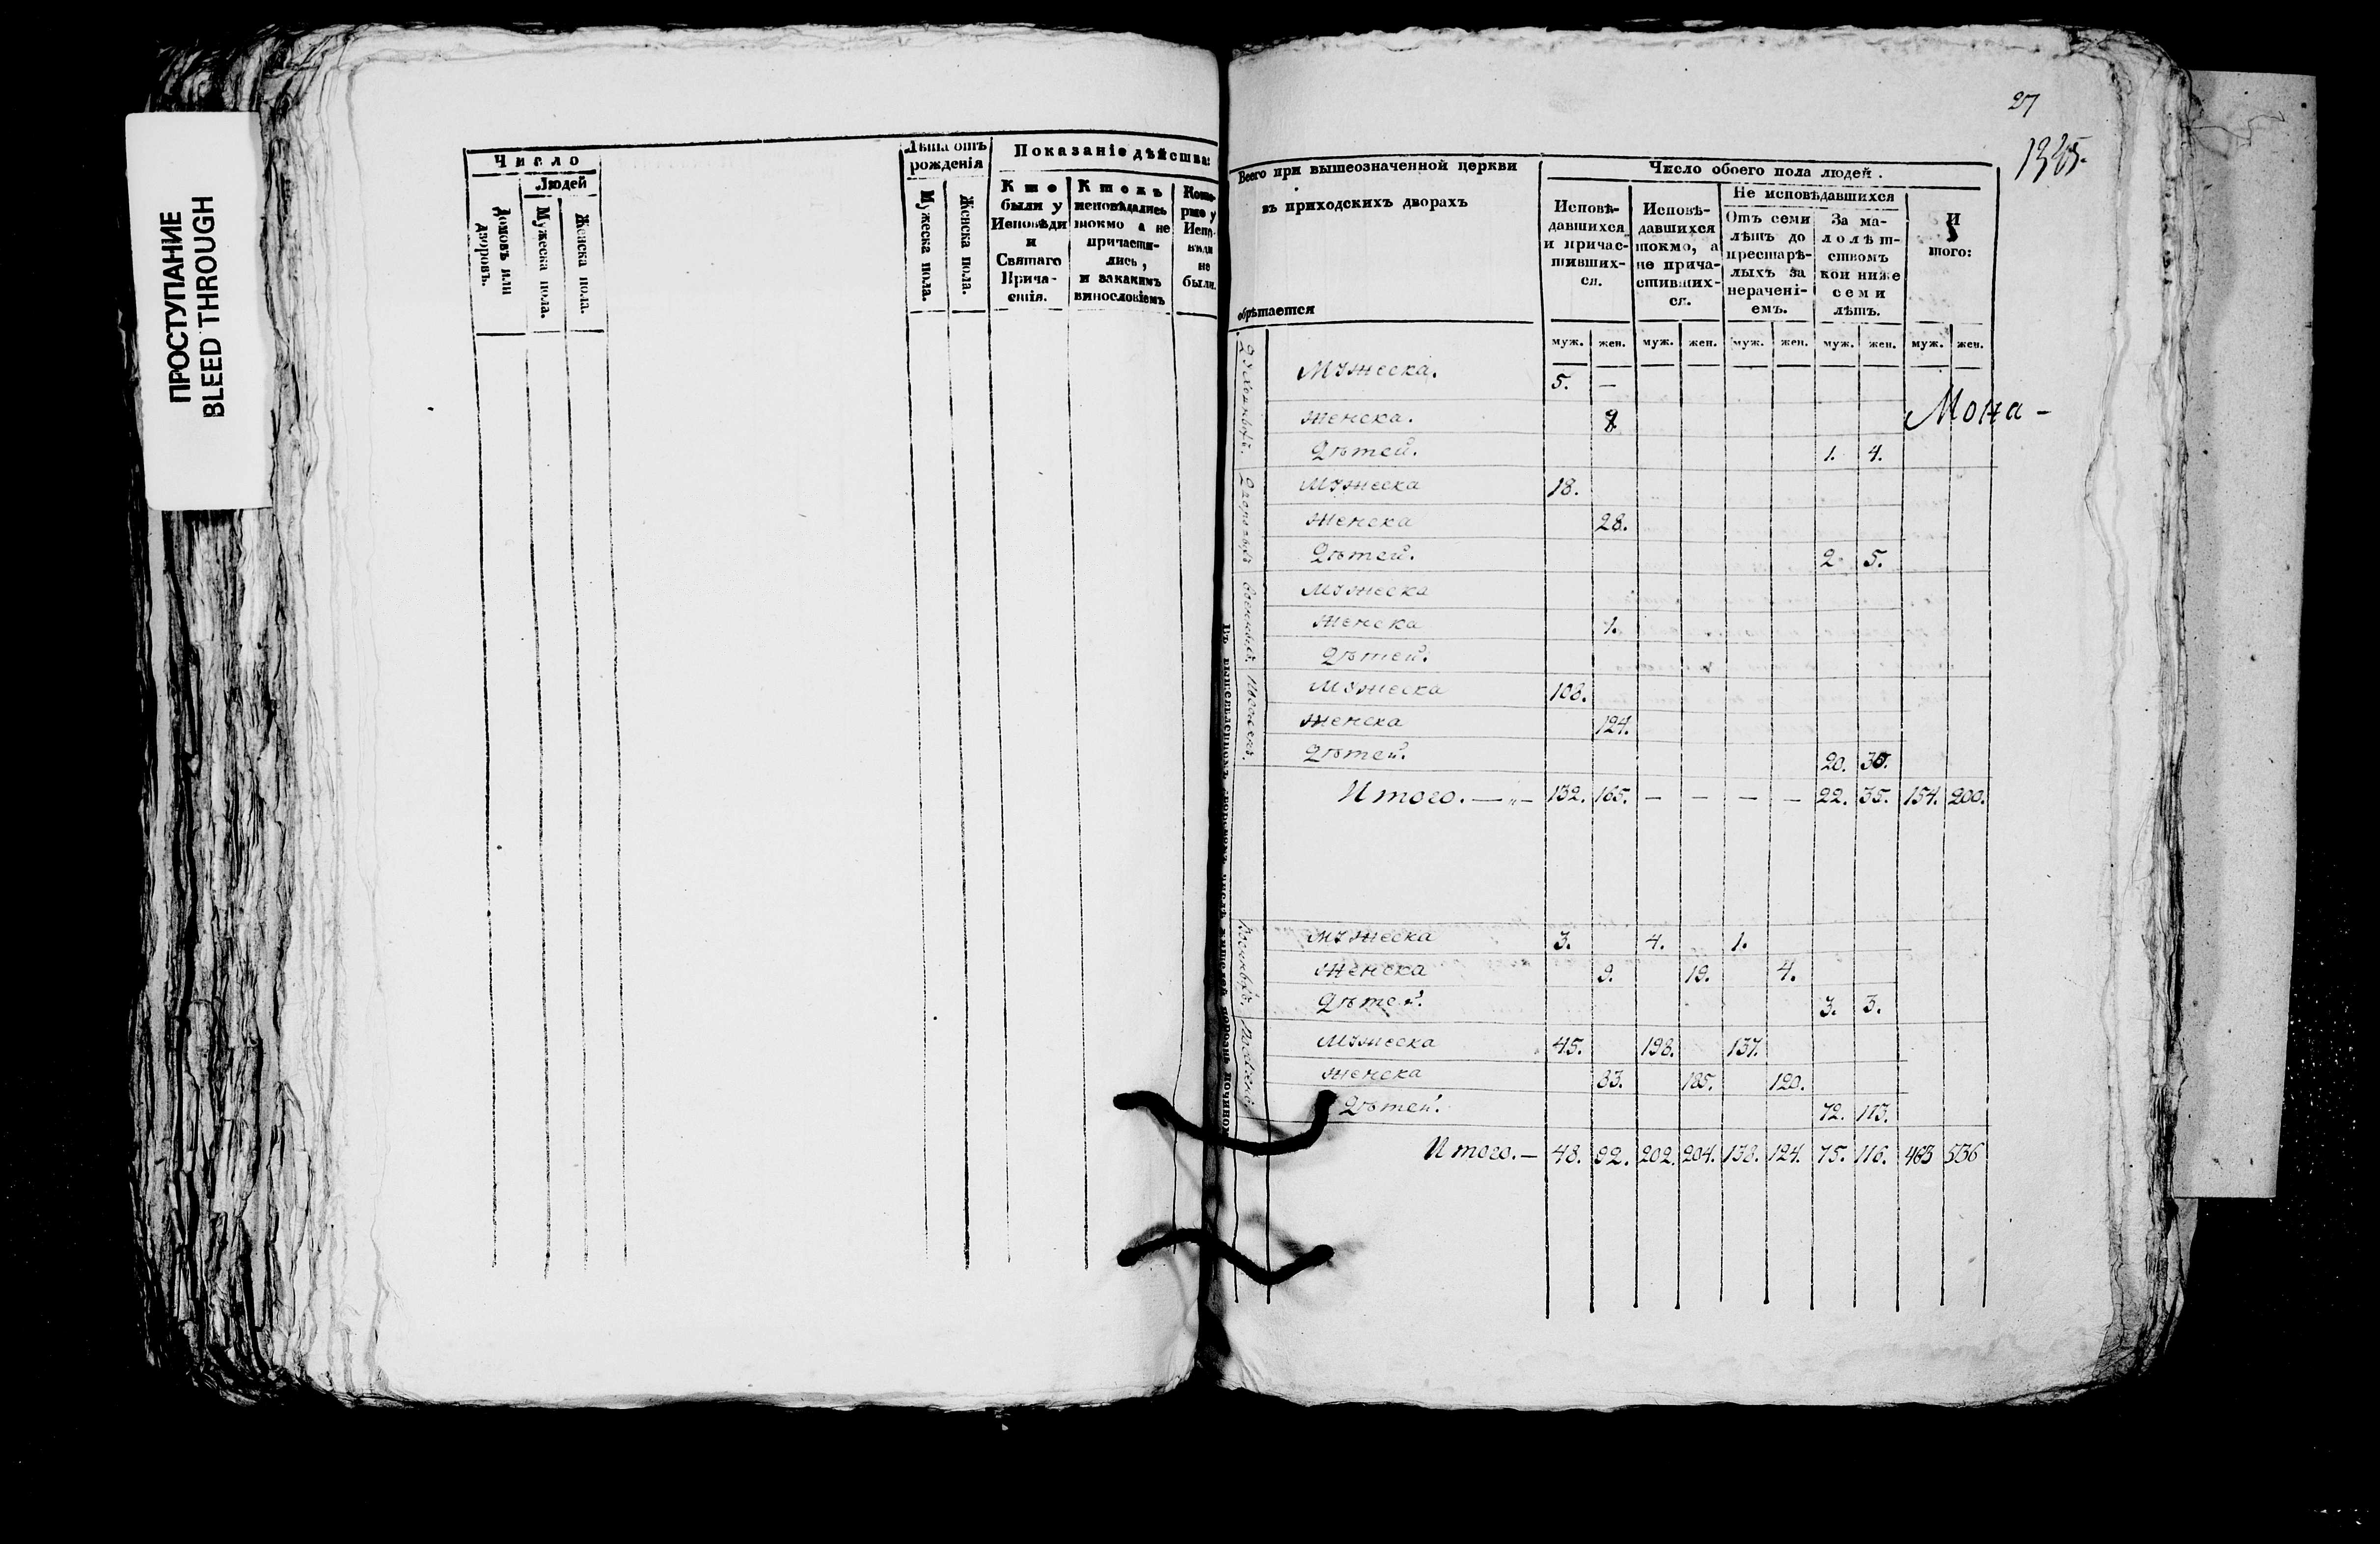 ПРОСТУПАНИЕ
BLEED THROUGH
Число
Людей
Домовъ или дворовъ.
Мужеска пола.
Женска пола.
Лѣта отъ рожденія
Мужеска пола.
Женска пола.
Показаніе дѣйства:
Кто были у Исповѣди и Святаго Прича-стія.
Кто исповѣдались токмо а не причасти-лись, и закакимъ винословіемъ
Кото-рые у Испо-вѣди не были.
27
Всего при вышеозначенной церкви
въ приходскихъ дворахъ
обрѣтается
Число обоего пола людей.
Исповѣ-давшихся и причас-тивших-ся.
Исповѣ-давшихся токмо, а не прича-стивших-ся.
Не исповѣдавшихся
Отъ семи лѣтъ до престарѣ-лыхъ за нерачені-емъ.
За ма-лолѣт-ствомъ кои ниже семи лѣтъ.
И того:
муж. жен. муж. жен. муж. жен. муж. жен. муж. жен.
Мужеска. 5. —
Женска.
Мона-
Дѣтей. 1. 4.
Мужеска 18.
Женска 28.
Дѣтей. 2 5.
Мужеска
Женска 1.
Дѣтей.
Мужеска 108.
Женска 124.
Дѣтей. 20.
Итого. — „ — 132. 165. — — — — 22. 35. 154. 200.
Мужеска 3. 4. 1.
Женска 9. 19. 4.
Дѣтей. 3. 3.
Мужеска 45. 198. 137.
Женска 83. 185. 120.
Дѣтей. 72. 113.
Итого. — 48. 92. 202. 204. 138. 124. 75. 116. 463 536